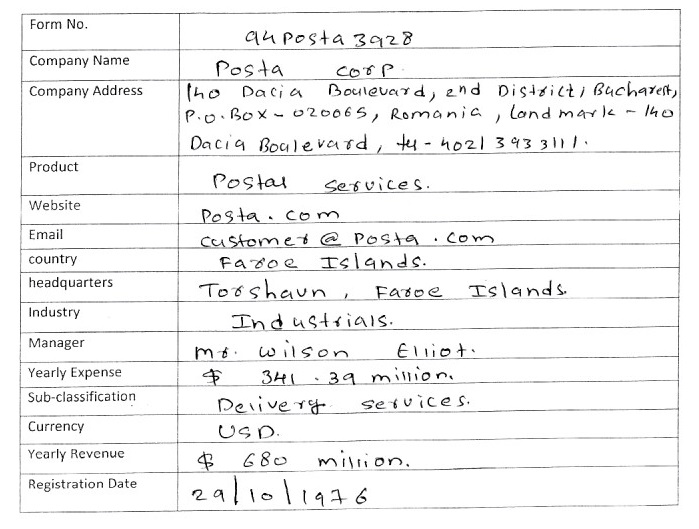 Form No. 94Posta3928
Company Name Posta corp
Company Address 140 Dacia Boulevard, 2nd District, Bucharest,
P.O.Box - 020065, Romania, landmark - 140
Dacia Boulevard, tel - 40213933111.
Product Postal services.
Website Posta.com
Email customer@Posta.com
country Faroe Islands.
headquarters Torshavn, Faroe Islands.
Industry Industrials.
Manager mr. wilson Elliot.
Yearly Expense $ 341.39 million.
Sub-classification Delivery services.
Currency USD.
Yearly Revenue $ 680 million.
Registration Date 29/10/1976